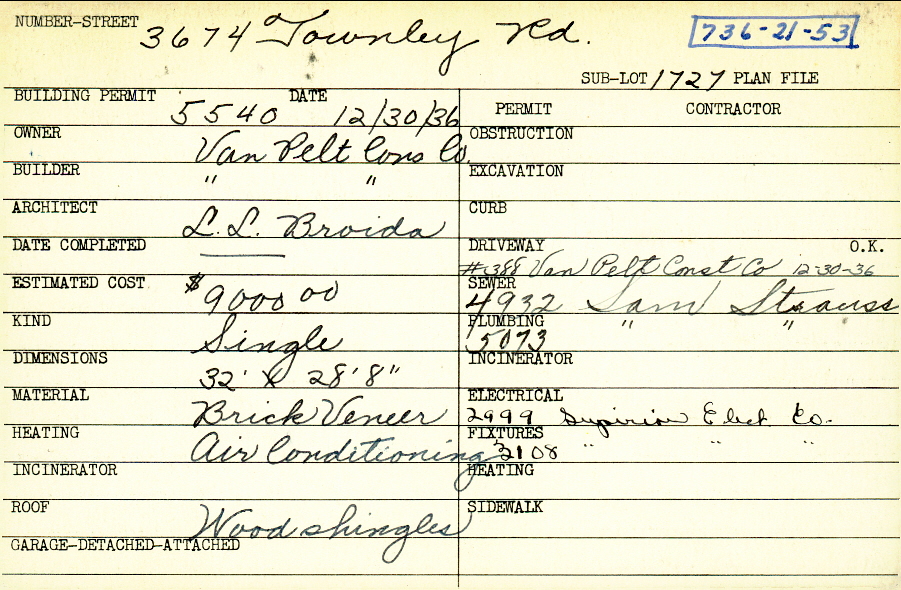 NUMBER-STREET 3674 Townley Rd. 736-21-53
SUB-LOT 1727 PLAN FILE
BUILDING PERMIT 5540 DATE 12/30/36
PERMIT CONTRACTOR
OWNER Van Pelt Cons Co.
OBSTRUCTION
BUILDER " "
EXCAVATION
ARCHITECT L.L. Broida
CURB
DATE COMPLETED ——
DRIVEWAY O.K.
#388 Van Pelt Const Co 12-30-36
ESTIMATED COST $9000 00
SEWER
4932 Sam Strauss
KIND Single
PLUMBING " "
5073
DIMENSIONS 32' X 28'8"
INCINERATOR
MATERIAL Brick Veneer
ELECTRICAL
2999 Superior Elect Co.
HEATING Air Conditioning
FIXTURES " " "
3108
INCINERATOR
HEATING
ROOF Wood shingles
SIDEWALK
GARAGE-DETACHED-ATTACHED